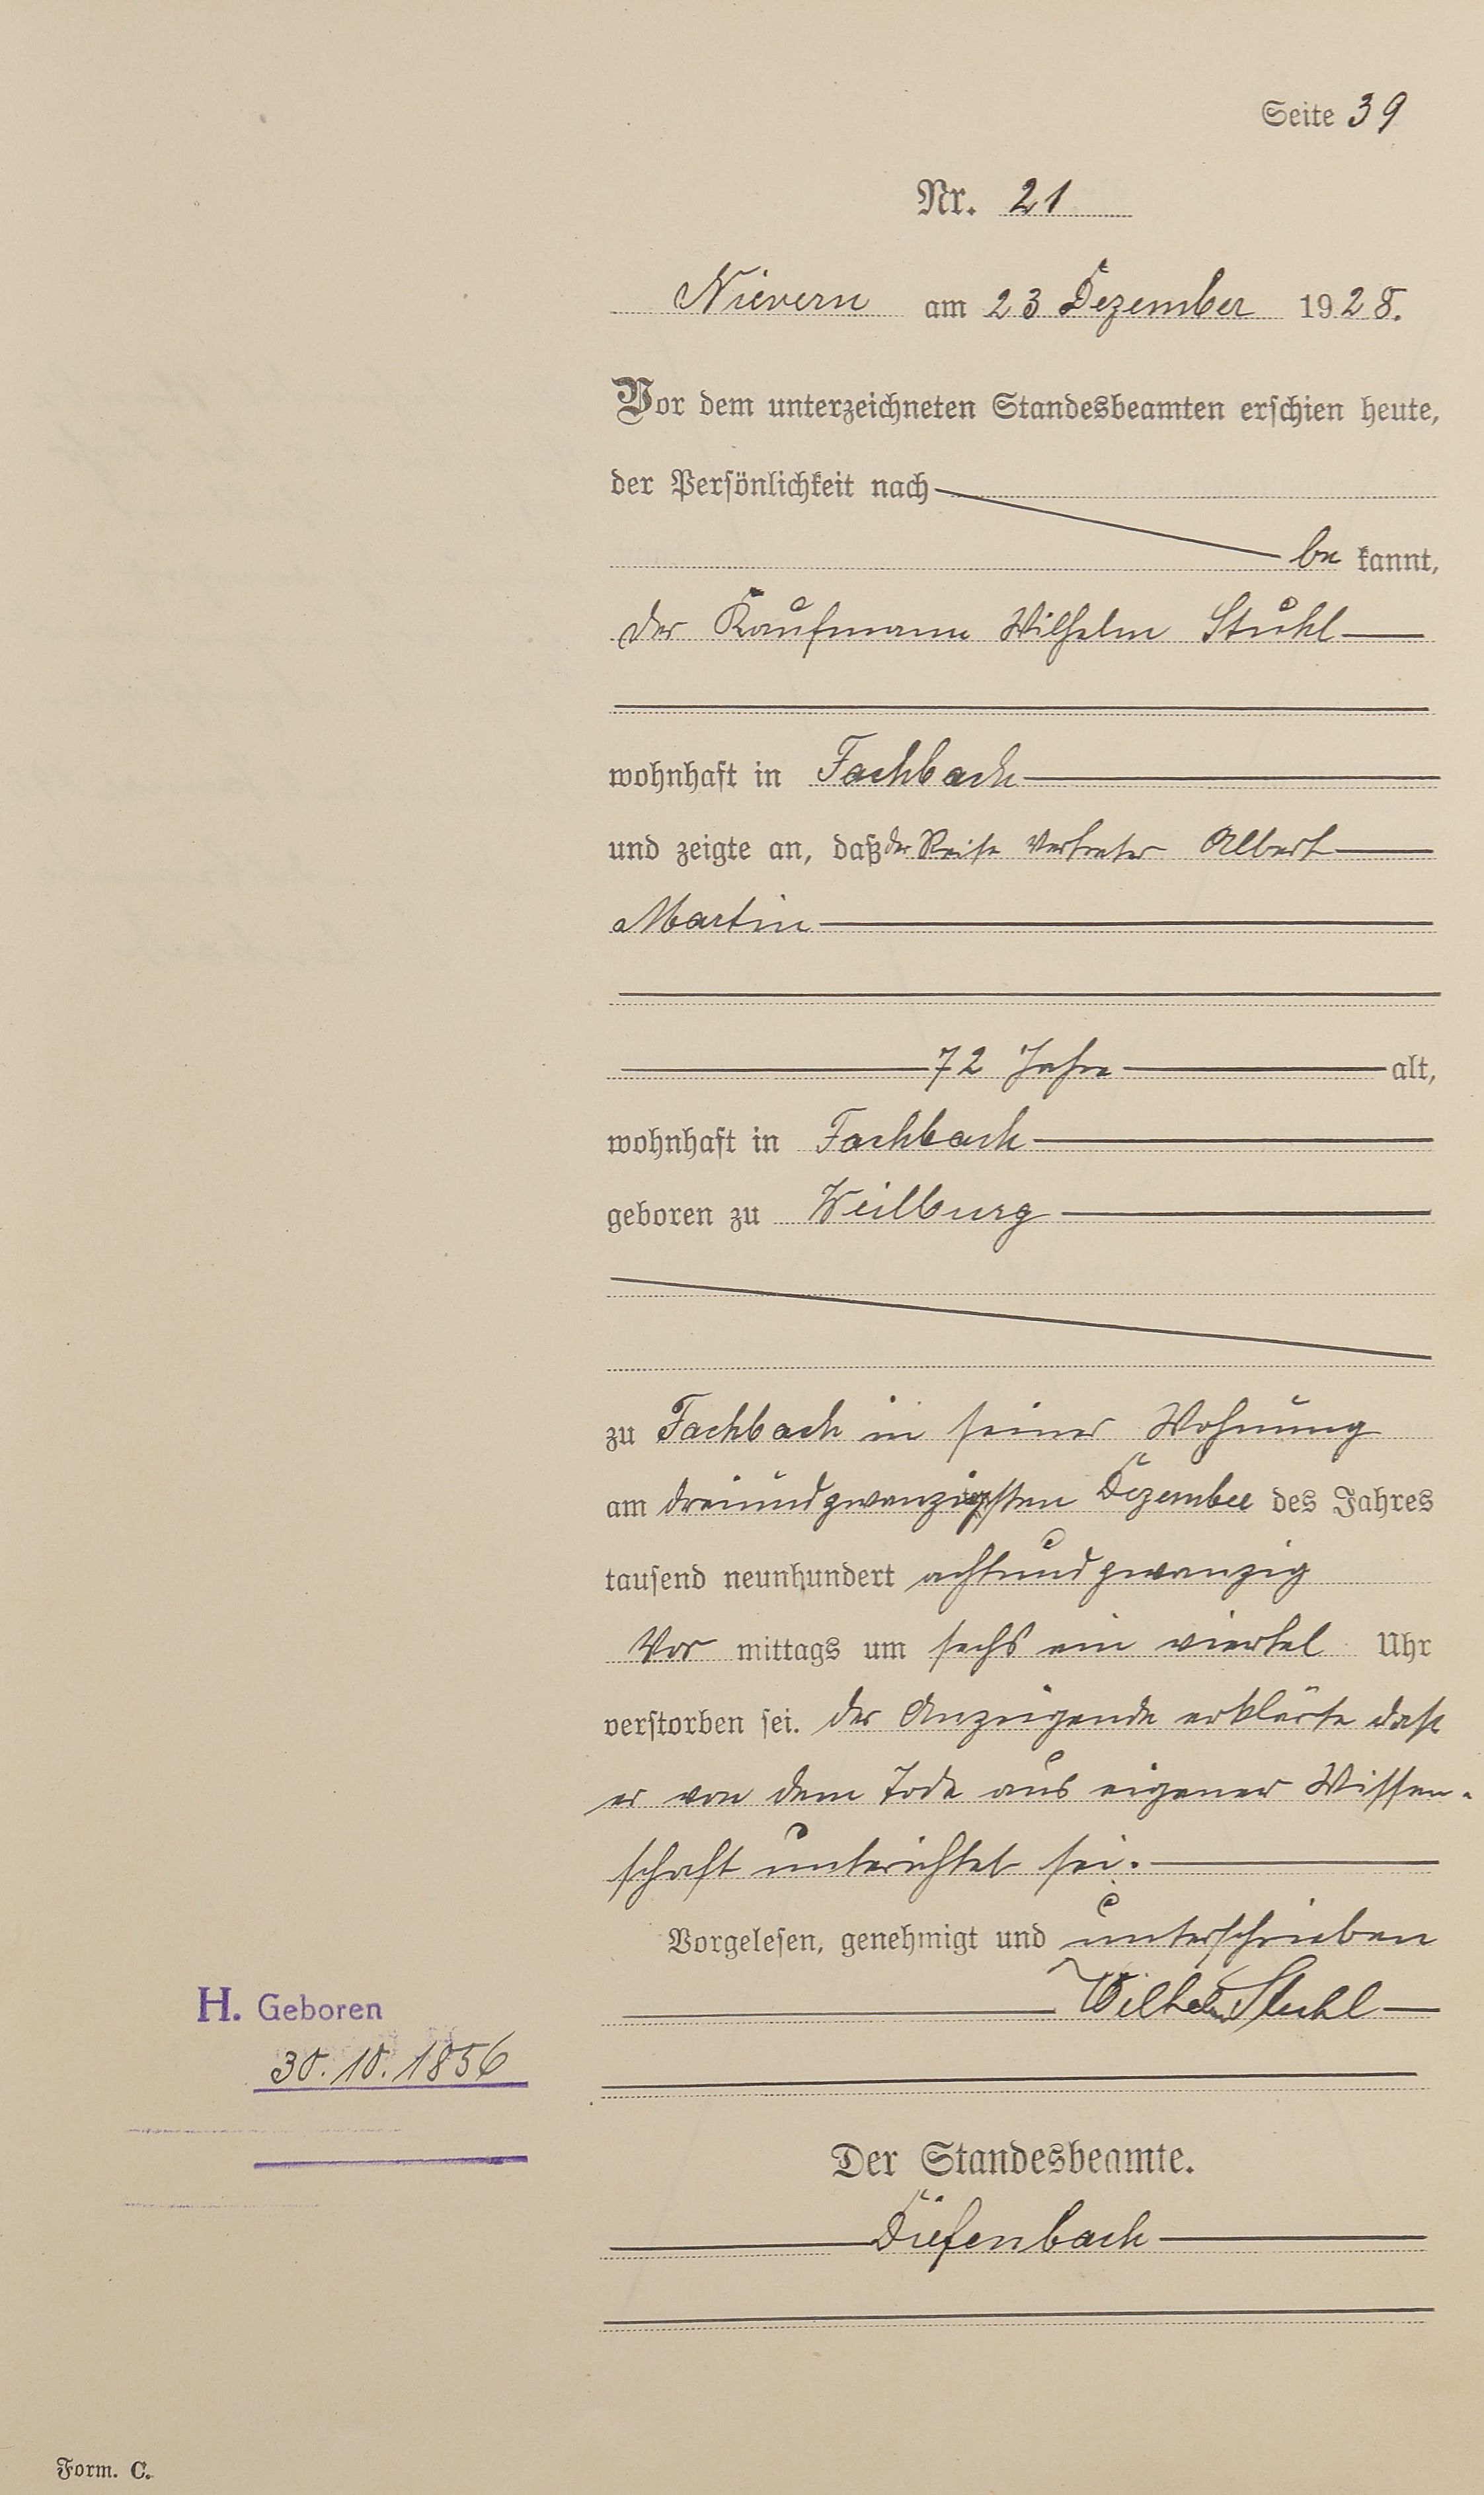 Seite 39
Nr. 21
Nievern am 23 Dezember 1928.
Vor dem unterzeichneten Standesbeamten erschien heute,
der Persönlichkeit nach
be kannt,
der Kaufmann Wilhelm Stuhl
wohnhaft in Fachbach
und zeigte an, daß der Reise Vertreter Albert
Martin
72 Jahre alt,
wohnhaft in Fachbach
geboren zu Weilburg
zu Fachbach in seiner Wohnung
am dreiundzwanzigsten Dezember des Jahres
tausend neunhundert achtundzwanzig
Vor mittags um sechs ein viertel Uhr
verstorben sei. Der Anzeigende erklärte daß
er von dem Tode aus eigener Wissen-
schaft unterichtet sei.
Vorgelesen, genehmigt und unterschrieben
Wilhelm Stuhl
H. Geboren
30. 10. 1856
Der Standesbeamte.
Diefenbach
Form. C.